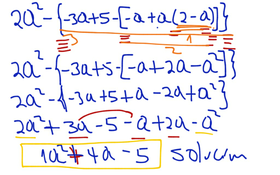 2a²-{-3a+5-[-a+a(2-a)]}
3 2 1
2a²-{-3a+5-[-a+2a-a²]}
2a²-{-3a+5+a-2a+a²}
2a²+3a-5-a+2a-a²
1a²+4a-5